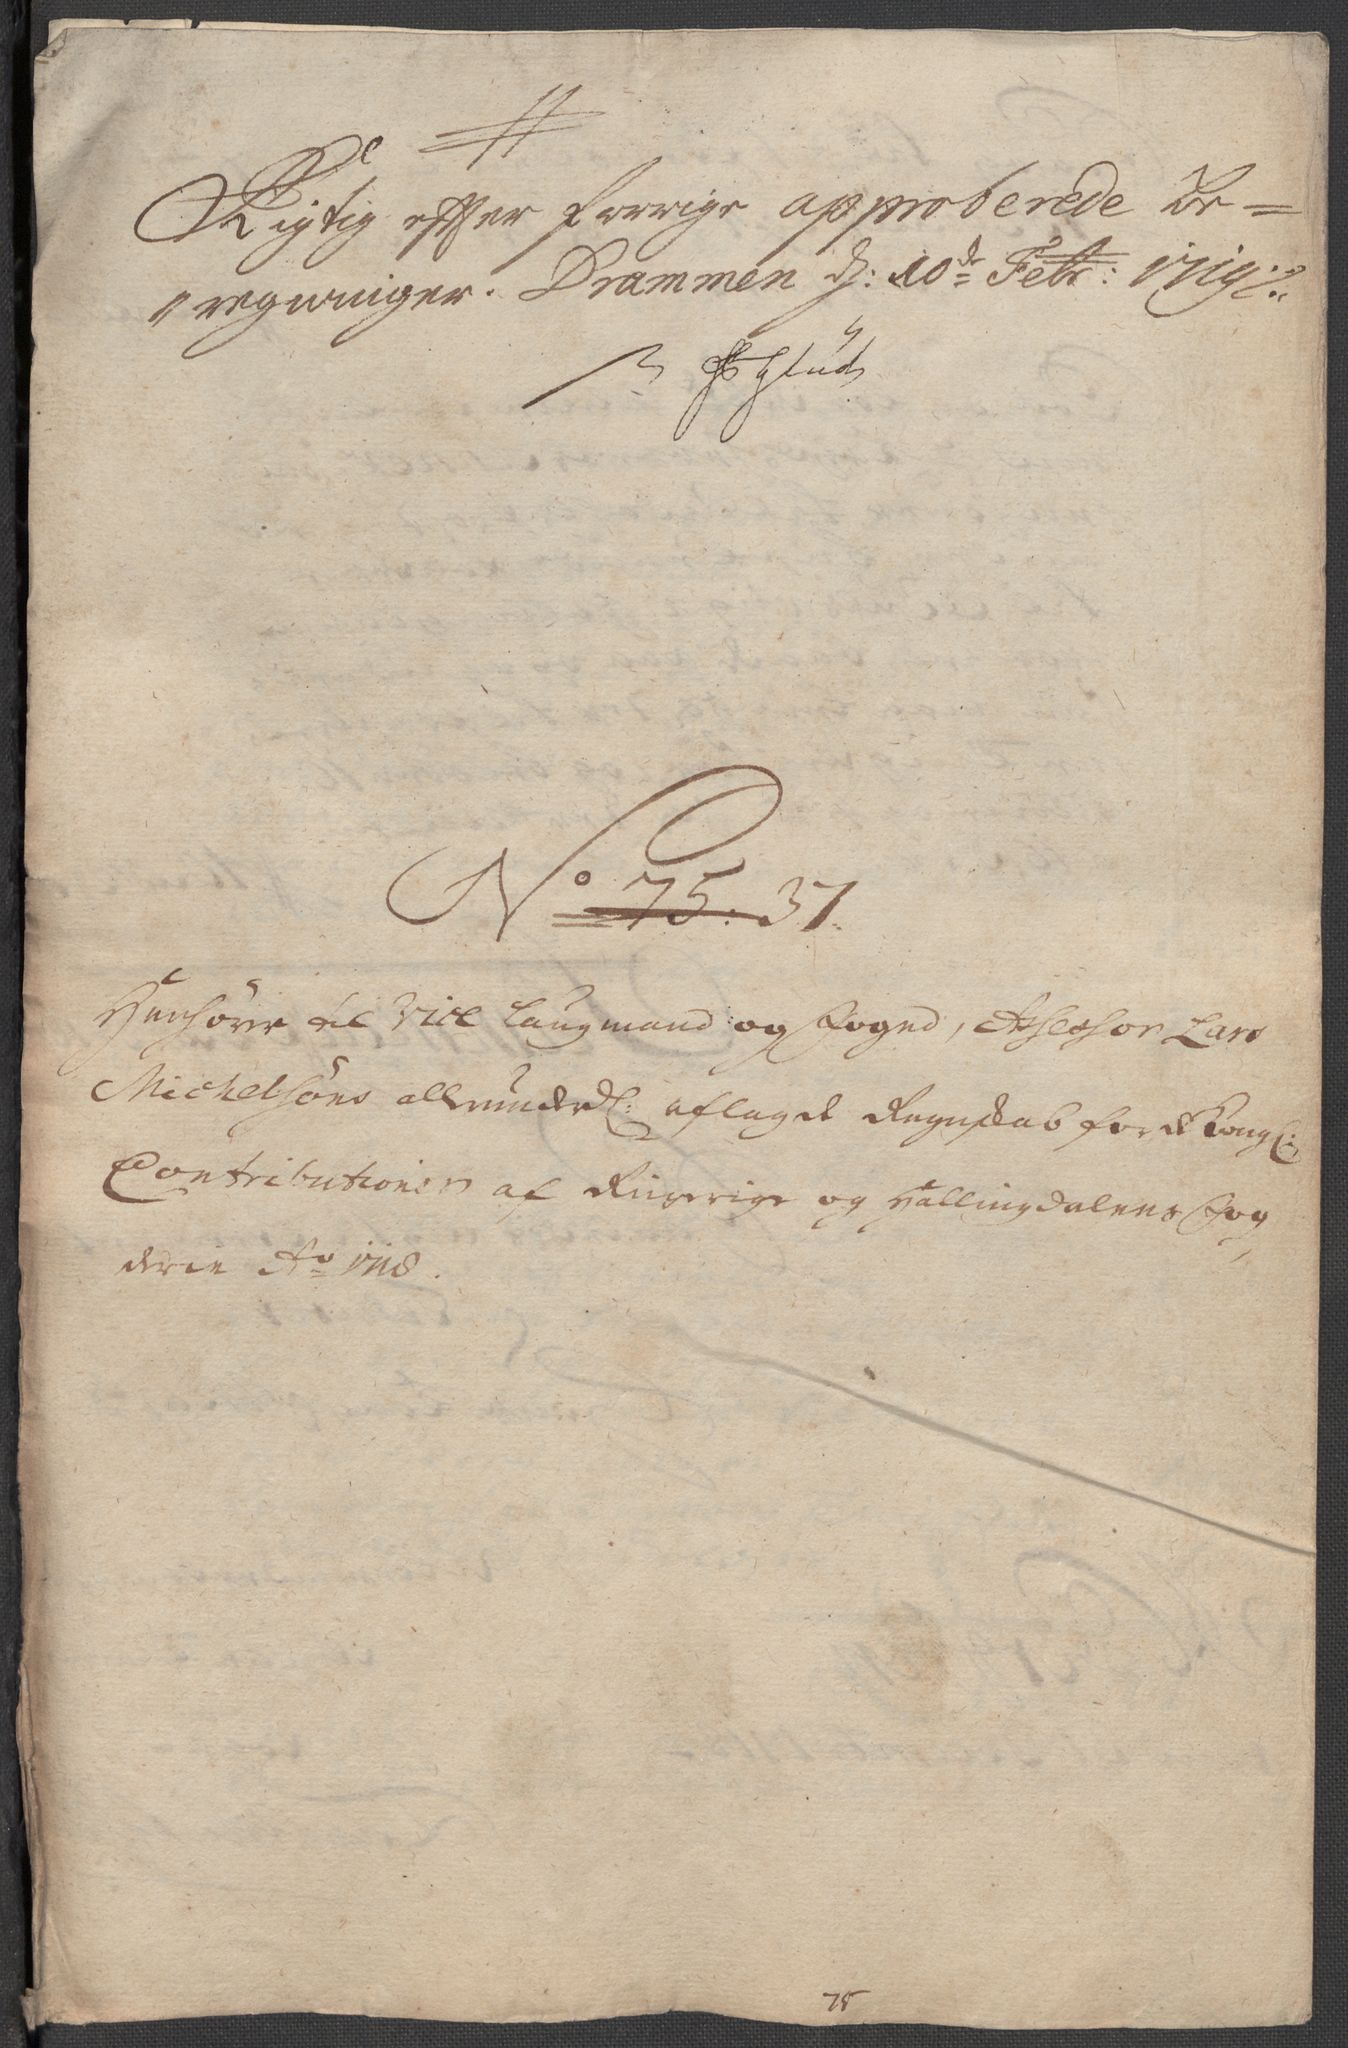 Rigtig efter forrige approberede Be=
regninger. Drammen d: 10de Febr: 1719.
No 75. 37.
Henhører til Vice Laugmand og Foged, Assessor Lars
Michelsöns allerunderd: aflagde Regnskab for de Kongl:
Contributioner af Ringerige og Hallingdalens Fog
derie Ao 1718.
75